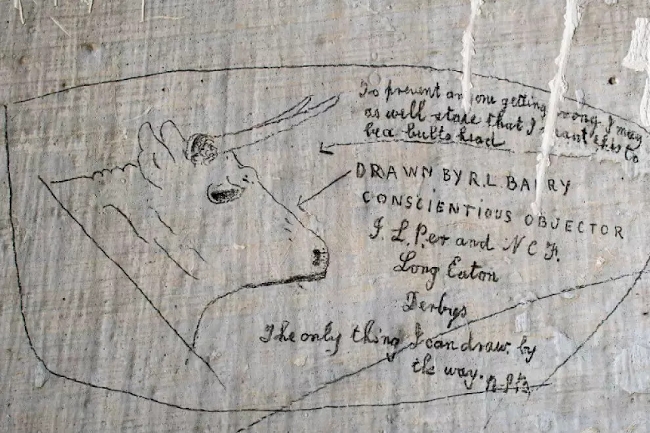 To prevent anyone getting wrong I may
as well state that I want this to
be a bulls head
DRAWN BY R.L. BARRY
CONSCIENTIOUS OBJECTOR
I. L. Per and N C F.
Long Eaton
Derbys
The only thing I can draw, by
the way.